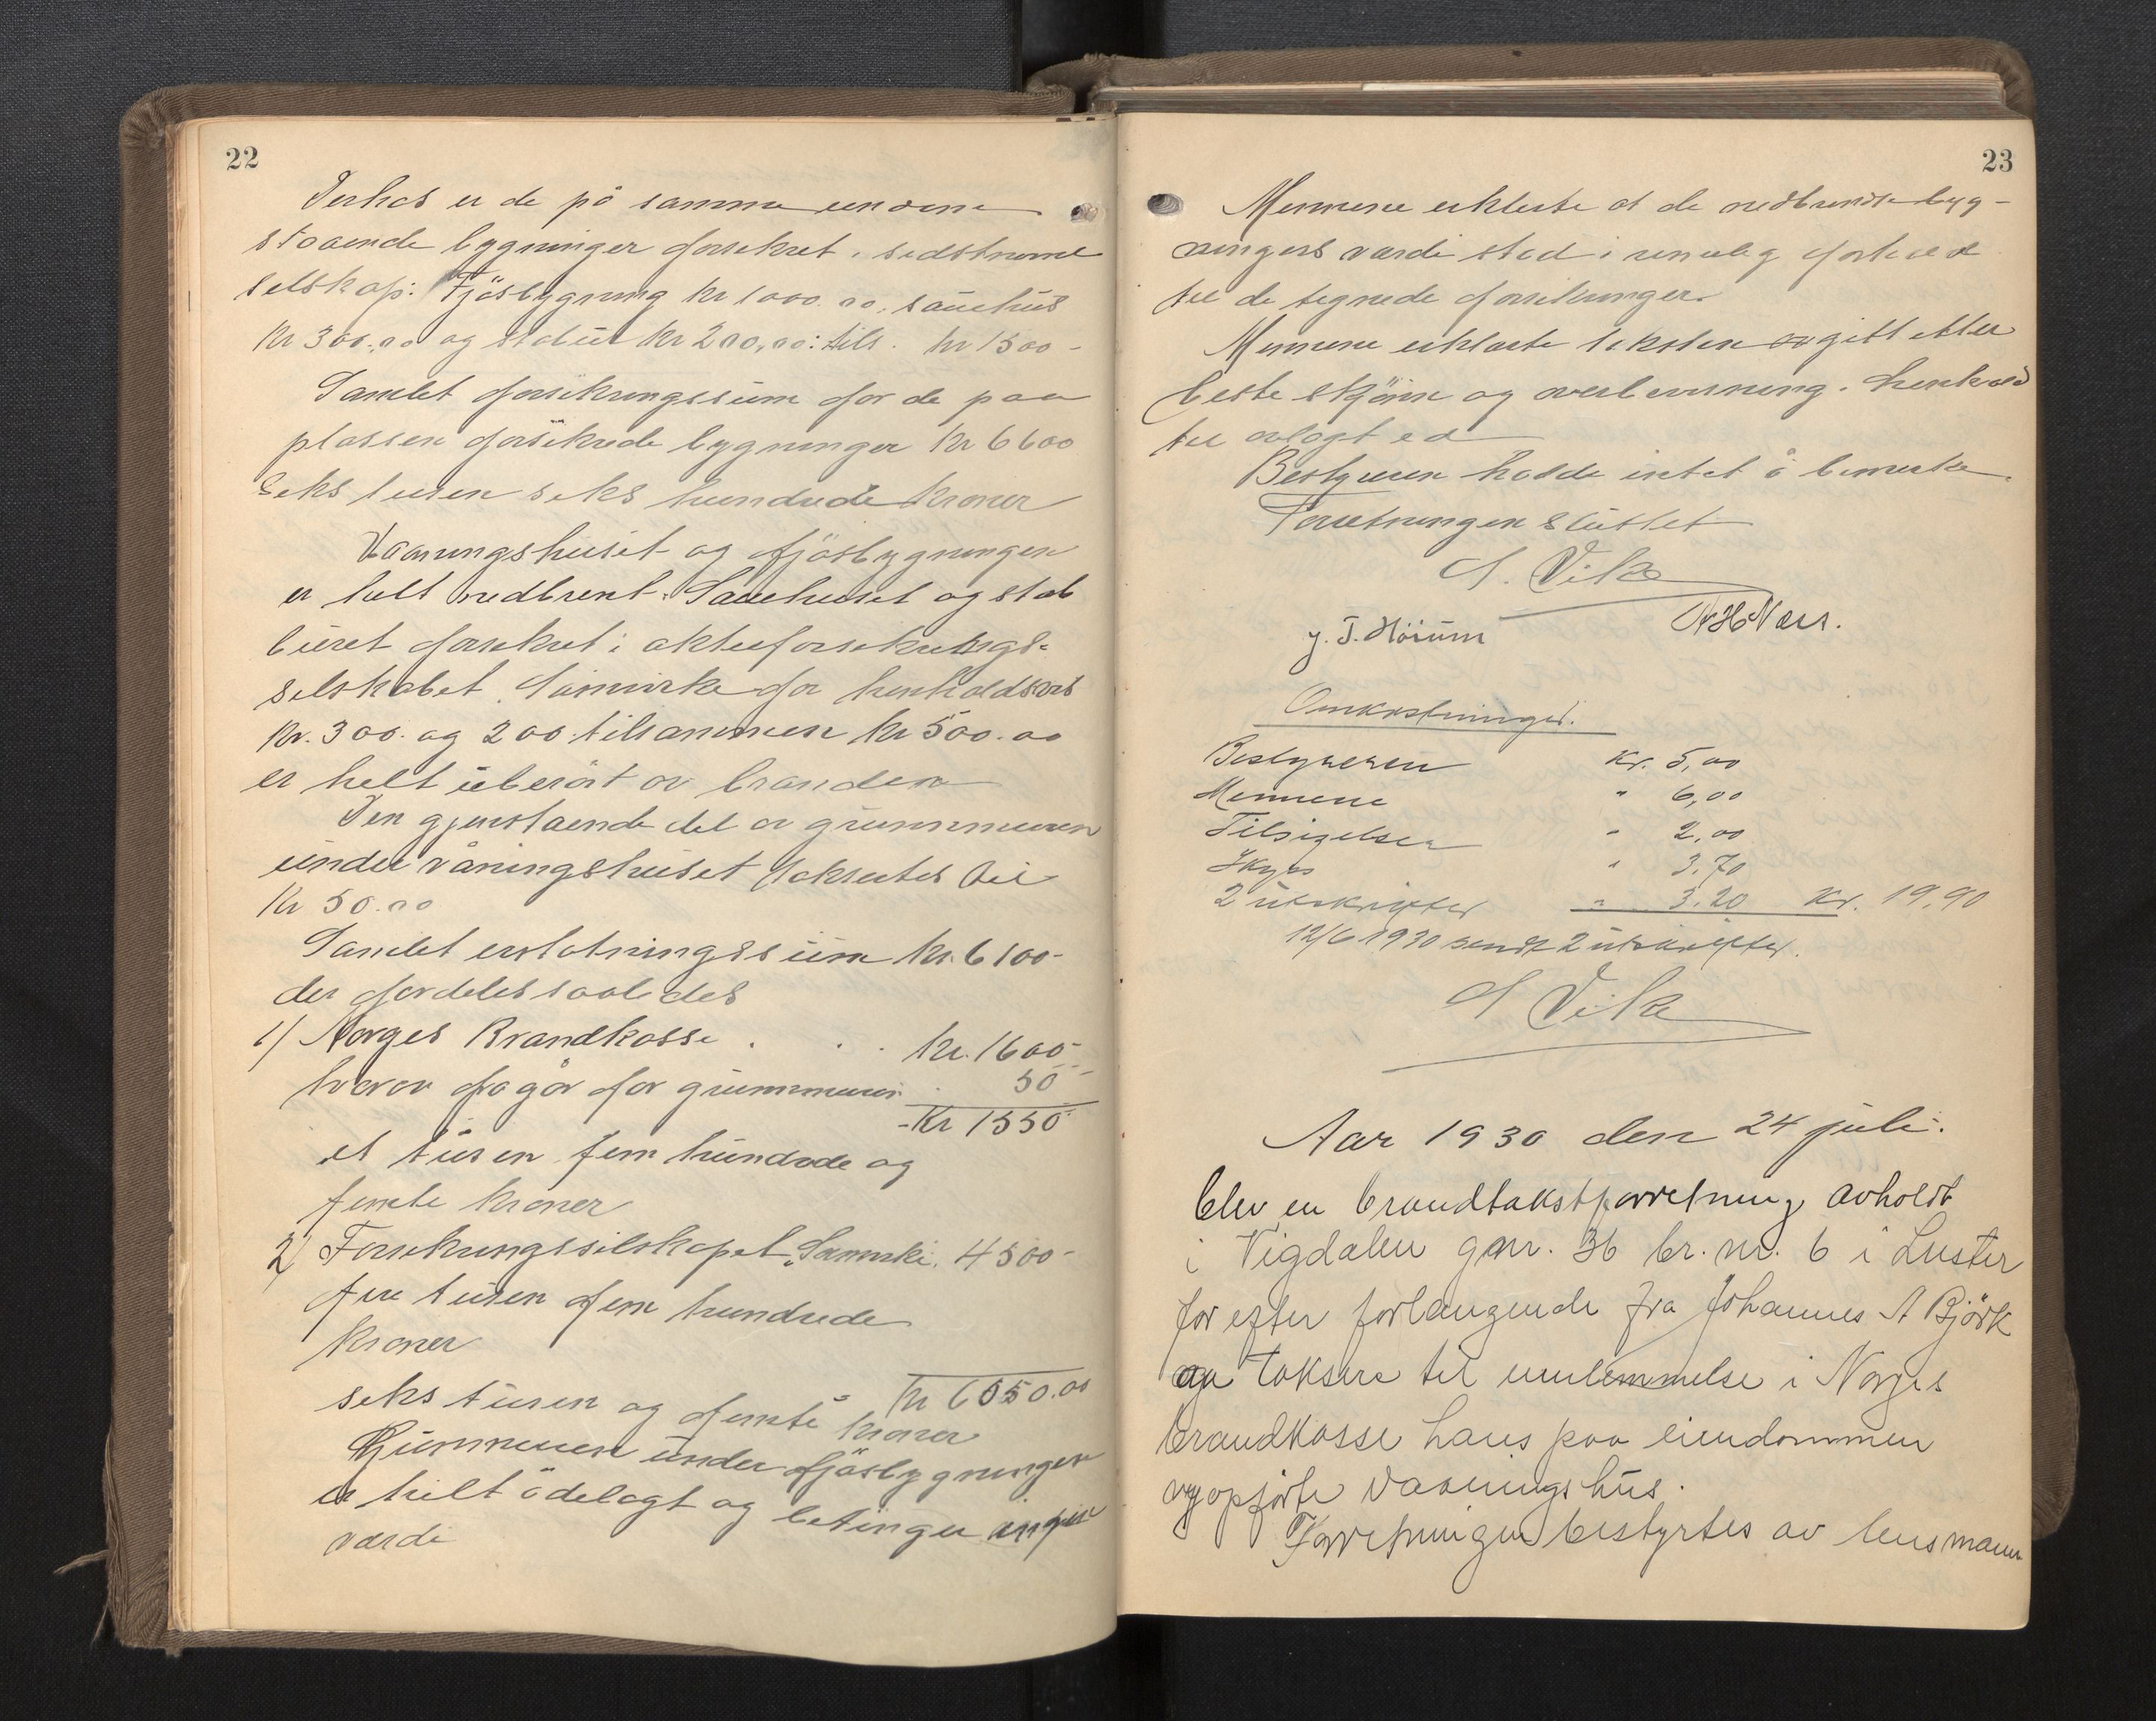 22
Derhos er de på samme eiendom
staaende bygninger forsikret i sidstnevnte
selskap: Fjösbygning kr 1000.00, sauehus
kr 300.00 og stabur kr 200,00: tils. kr 1500-
Samlet forsikringssum for de paa
plassen forsikrede bygninger kr 6600
Seks tusen seks hundrede kroner
Vaaningshuset og fjösbygningen
er helt nedbrent. Sauehuset og stab
buret forsikret i aktieforsikrings-
selskabet Samvirke for henholdsvis
kr. 300. og 200. tilsammen kr 500.00
er helt uberört av branden
Den gjenstaaende del av grunnmuren
under våningshuset takseres til
kr 50.00
Samlet erstatningssum kr. 6100-
der fordeles saaledes
1) Norges Brandkasse . . . kr. 1600-
hvorav fragår for grunnmuren . 50-
kr 1550-
et tusen fem hundrede og
femti kroner
2) Forsikringsselskapet "Samvirke" 4500-
fire tusen fem hundrede
kroner
kr 6050.00
seks tusen og femti kroner
Grunnmuren under fjösbygningen
er helt ödelagt og betinger ingen
værdi
23
Mennene erklærte at de nedbrendte byg-
ningers værdi stod i rimelig forhold
til de tegnede forsikringer.
Mennene erklærte taksten avgitt etter
beste skjönn og overbevisning i henhold
til avlagt ed
Bestyreren hadde intet å bemerke.
Forretningen sluttet
S. Vike
J. T. Höium
N H Næss.
Omkostninger.
Bestyreren kr. 5,00
Mennene " 6,00
Tilsigelsen " 2,00
Skyss " 3.70
2 utskrifter " 3.20 kr. 19,90
12/6 1930 sendt 2 utskrifter.
S Vike
Aar 1930 den 24 juli.
blev en brandtakstforretning avholdt
i Vigdalen gnr. 36 br. nr. 6 i Luster
for efter forlangende fra Johannes A Björk
aa taksere til innlemmelse i Norges
brandkasse hans paa eiendommen
nyopförte vaaningshus.
Forretningen bestyrtes av lensmann